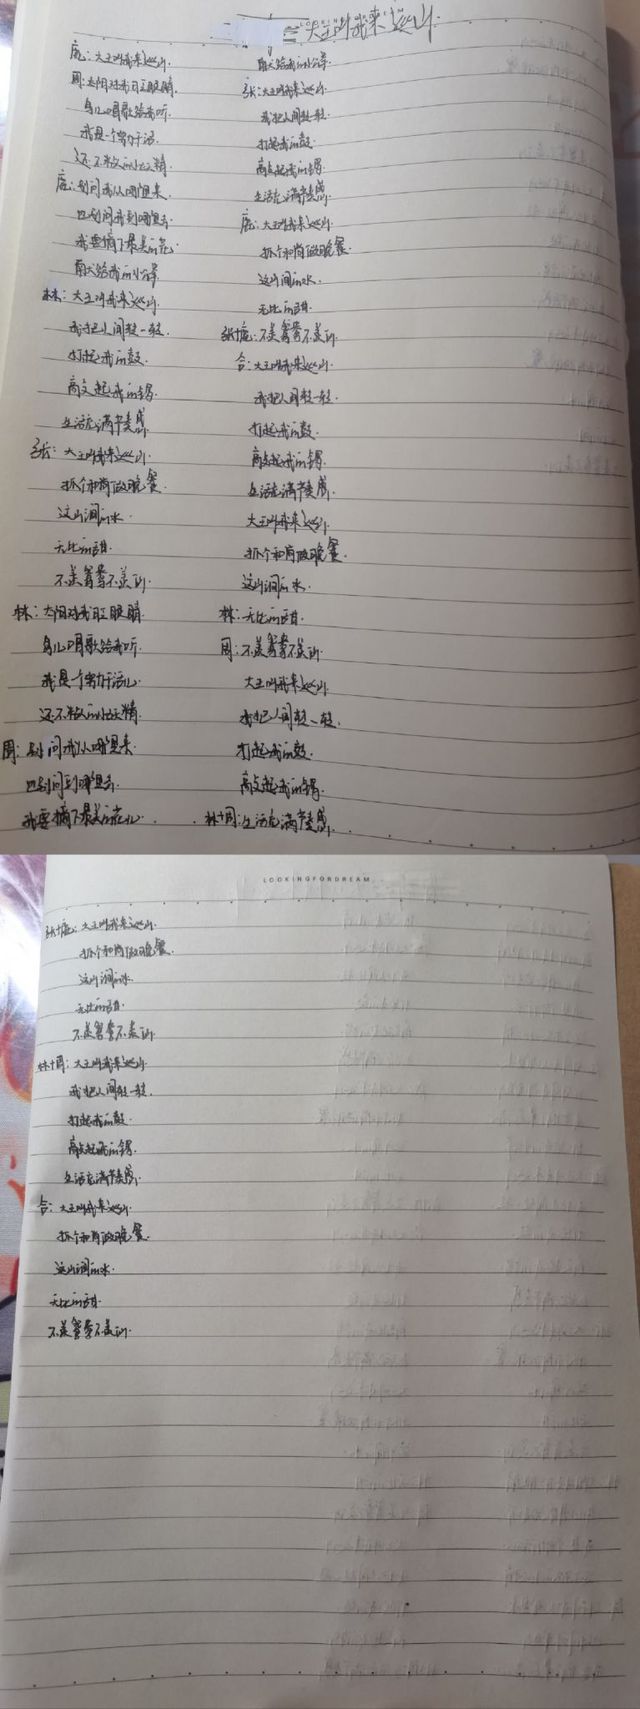 大王叫我来巡山
庞：大王叫我来巡山.
周：太阳对我眨眼睛.
鸟儿唱歌给我听.
我是一个努力干活.
还不粘人的小妖精.
庞：别问我从哪里来.
也别问我到哪里去.
我要摘下最美的花.
献给我的小公举
林：大王叫我来巡山.
我把人间转一转.
打起我的鼓.
敲起我的锣.
生活充满节奏感.
张：大王叫我来巡山.
抓个和尚做晚餐.
这山涧的水.
无比的甜.
不羡鸳鸯不羡仙.
林：太阳对我眨眼睛.
鸟儿唱歌给我听.
我是一个努力干活儿
还不粘人的小妖精.
周：别问我从哪里来.
也别问到哪里去.
我要摘下最美的花儿.
献给我的小公举.
张：大王叫我来巡山.
我把人间转一转.
打起我的鼓.
敲起我的锣.
生活充满节奏感.
庞：大王叫我来巡山.
抓个和尚做晚餐.
这山涧的水.
无比的甜.
张+庞：不羡鸳鸯不羡仙.
合：大王叫我来巡山.
我把人间转一转.
打起我的鼓.
敲起我的锣.
生活充满节奏感.
大王叫我来巡山.
抓个和尚做晚餐.
这山涧的水.
林：无比的甜.
周：不羡鸳鸯不羡仙.
大王叫我来巡山.
我把人间转一转.
打起我的鼓.
敲起我的锣.
林+周：生活充满节奏感.
LOOKINGFORDREAM
张+庞：大王叫我来巡山.
抓个和尚做晚餐.
这山涧的水.
无比的甜.
不羡鸳鸯不羡仙.
林+周：大王叫我来巡山.
我把人间转一转.
打起我的鼓.
敲起我的锣.
生活充满节奏感.
合：大王叫我来巡山.
抓个和尚做晚餐.
这山涧的水.
无比的甜.
不羡鸳鸯不羡仙.